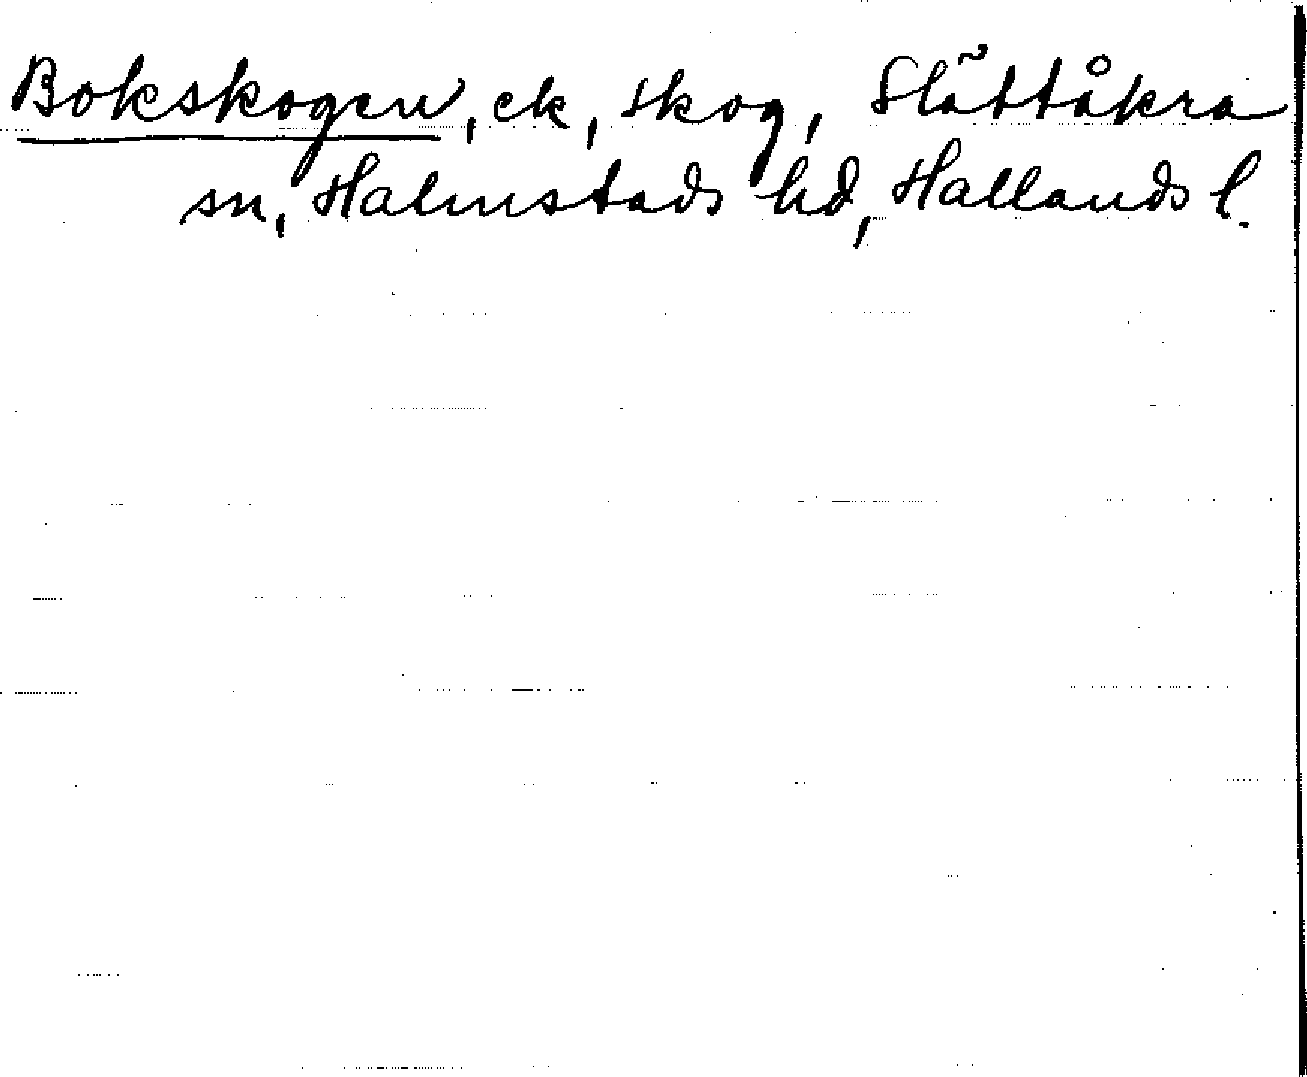 Bokskogen, ek, skog, Slättåkra
sn, Halmstads hd, Hallands l.